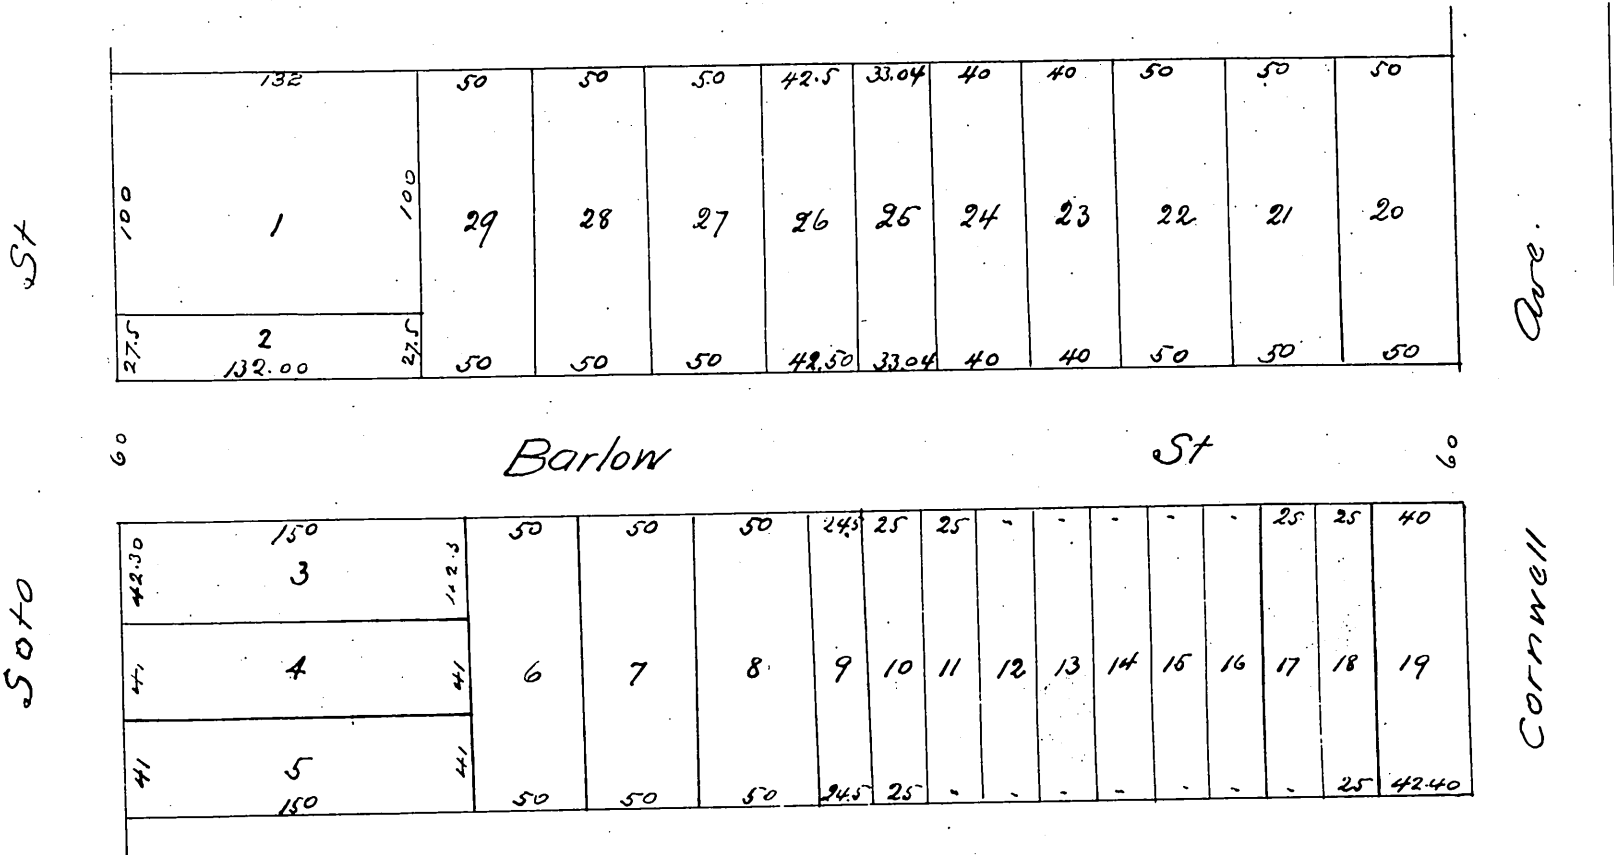 132 50 50 50 42.5 33.04 40 40 50 50 50
100 1 100 29 28 27 26 25 24 23 22 21 20
27.5 2 27.5
132.00 50 50 50 42.50 33.04 40 40 50 50 50
60 Barlow St 60
150 50 50 50 24.5 25 25 - - - - - 25 25 40
42.30 3
4 41 41
6 7 8 9 10 11 12 13 14 15 16 17 18 19
41 5 41
150 50 50 50 24.5 25 - - - - - - - 25 42.40
Soto St
Cornwell Ave.